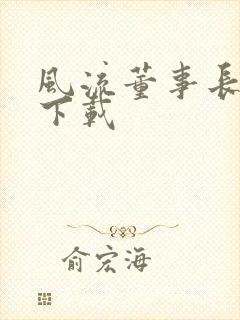 風流董事長
下載
俞宏海